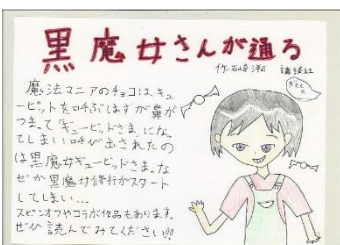 黒魔女さんが通る
作 石崎洋司 講談社
魔法マニアのチョコは、キュ
ーピットを呼ぶはずが鼻が
つまって「ギュービッドさま」にな
ってしまい呼び出されたの
は黒魔女ギュービッドさま。な
ぜか黒魔女修行がスタート
してしまい…
スピンオフやコラボ作品もあります。
ぜひ読んでみてください!!